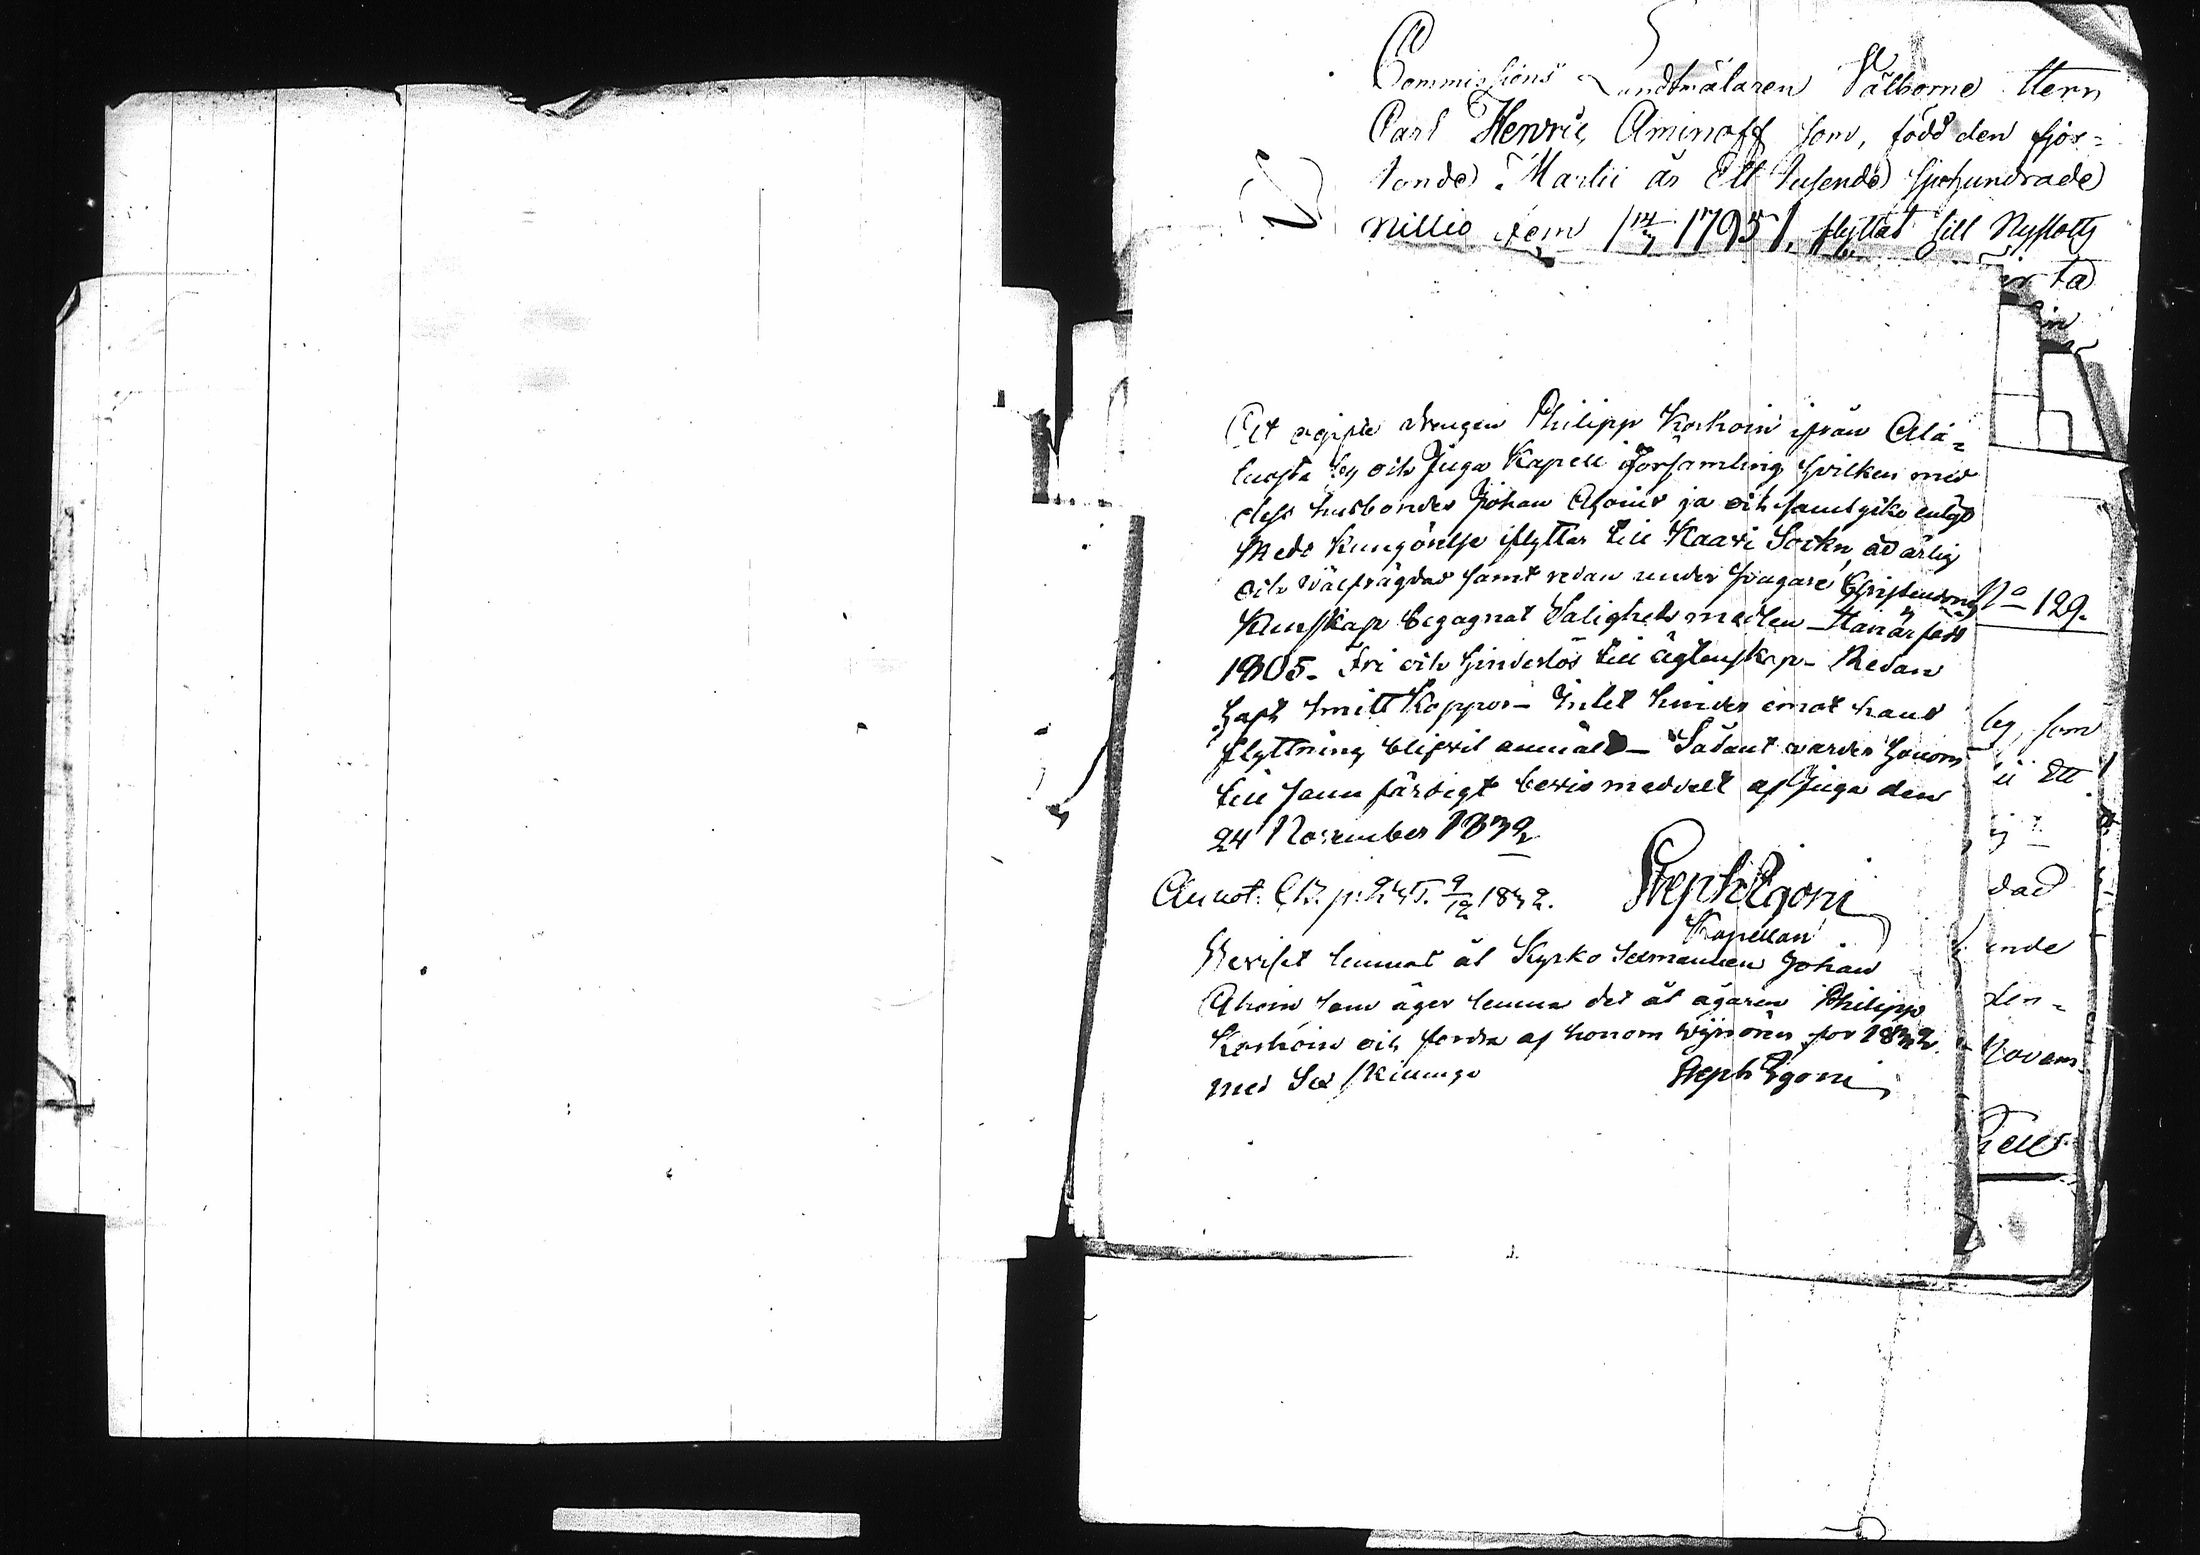 Commissions Landtmätaren Välborne Herr
Carl Henric Aminoff som, född den fjor-
tonde Martii år Ett Tusende sjuhundrade
nittio fem /14/3 1795/, flyttat till Nyslotts
ta
in
At ogifte drengen Philipp Koskoin ifrån Ala-
luosta by och Juga Kapell församling hvilken med
dess husbonde Johan Ahoin
Kungörelse flyttar till Kaavi Sockn, är ärlig
och välfrägdad samt redan under svagare Christendoms
Kunskap begagnat Salighets medlen - Han är född
1805. Fri och hinderlös till ägtenskap - Redan
haft smitt Koppor - Intet hinder emot hans
flyttning blifvit anmäld - Sådant varder honom
till sannfärdigt bevis meddelt af Juga den
24 November 1832
Steph Egoni
Kapellan
Annot. C.B. p. 9/12 1832.
Beviset lemnat åt Kyrko Sexmannen Johan
Ahoin som äger lemna det åt ägaren Philipp
Koskoin och fordra af honom för 1832
med Sex skillings
Steph Egoni
No 129.
by, som
Ett
dad
ende
den-
Novem-